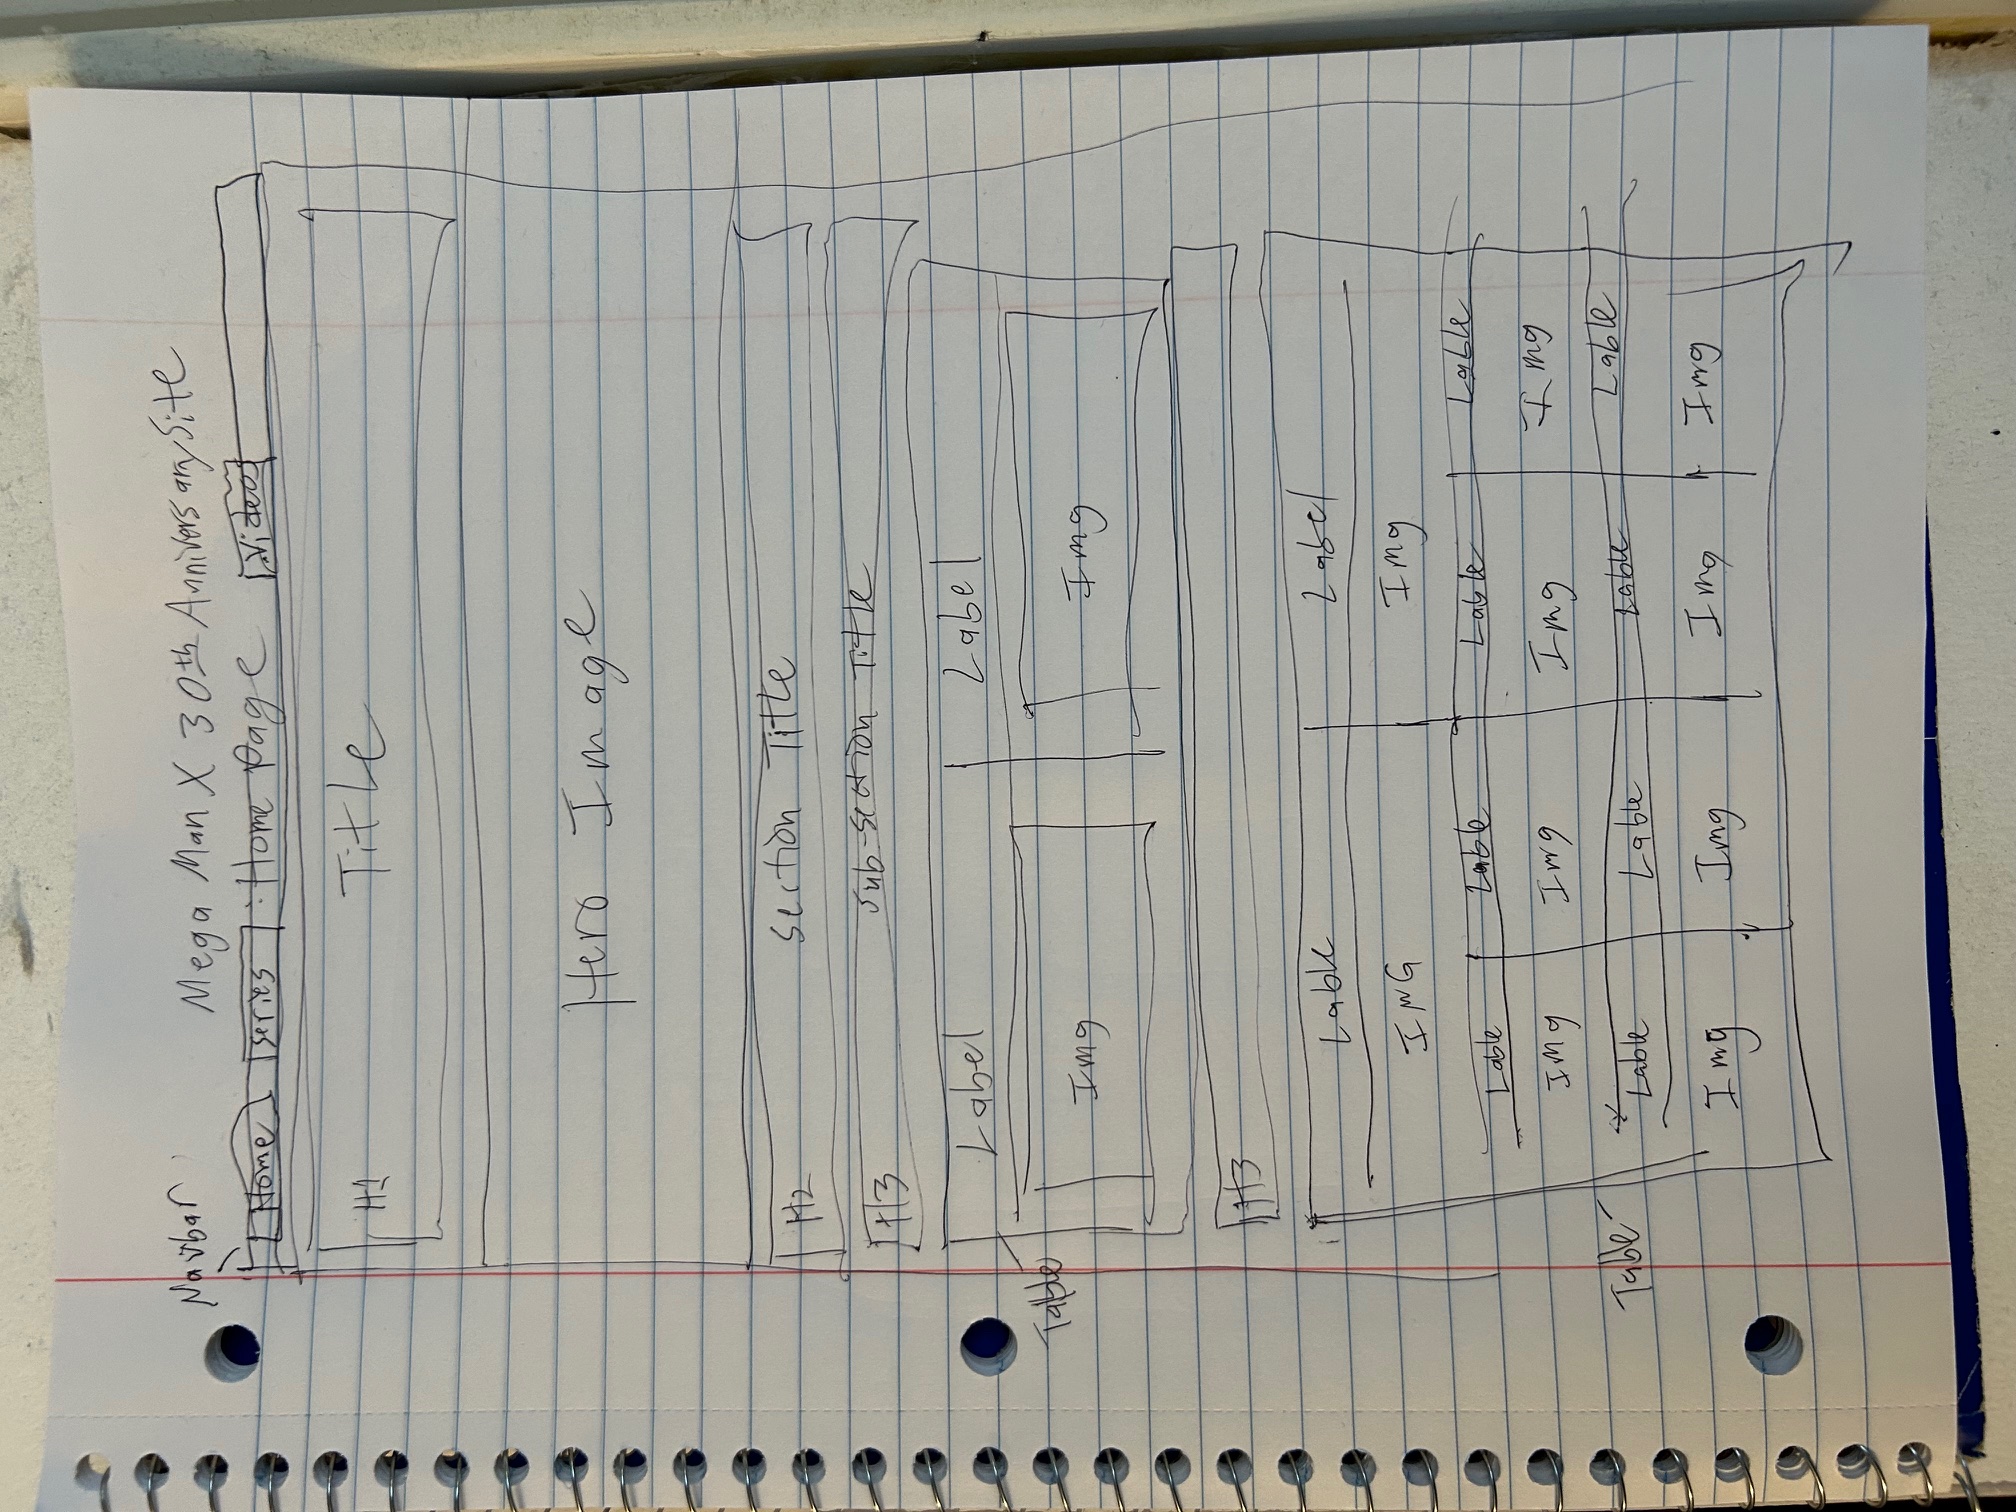 Navbar
Mega Man X 30th Anniversary Site
: Home Page
Home series Videos
H1 Title
Hero Image
H2 section Title
H3 sub-section Title
Label Label
Table
Img Img
H3
Lable Label
IMG Img
Lable Lable Lable Lable
Img Img Img Img
Table
Lable Lable Lable Lable
Img Img Img Img